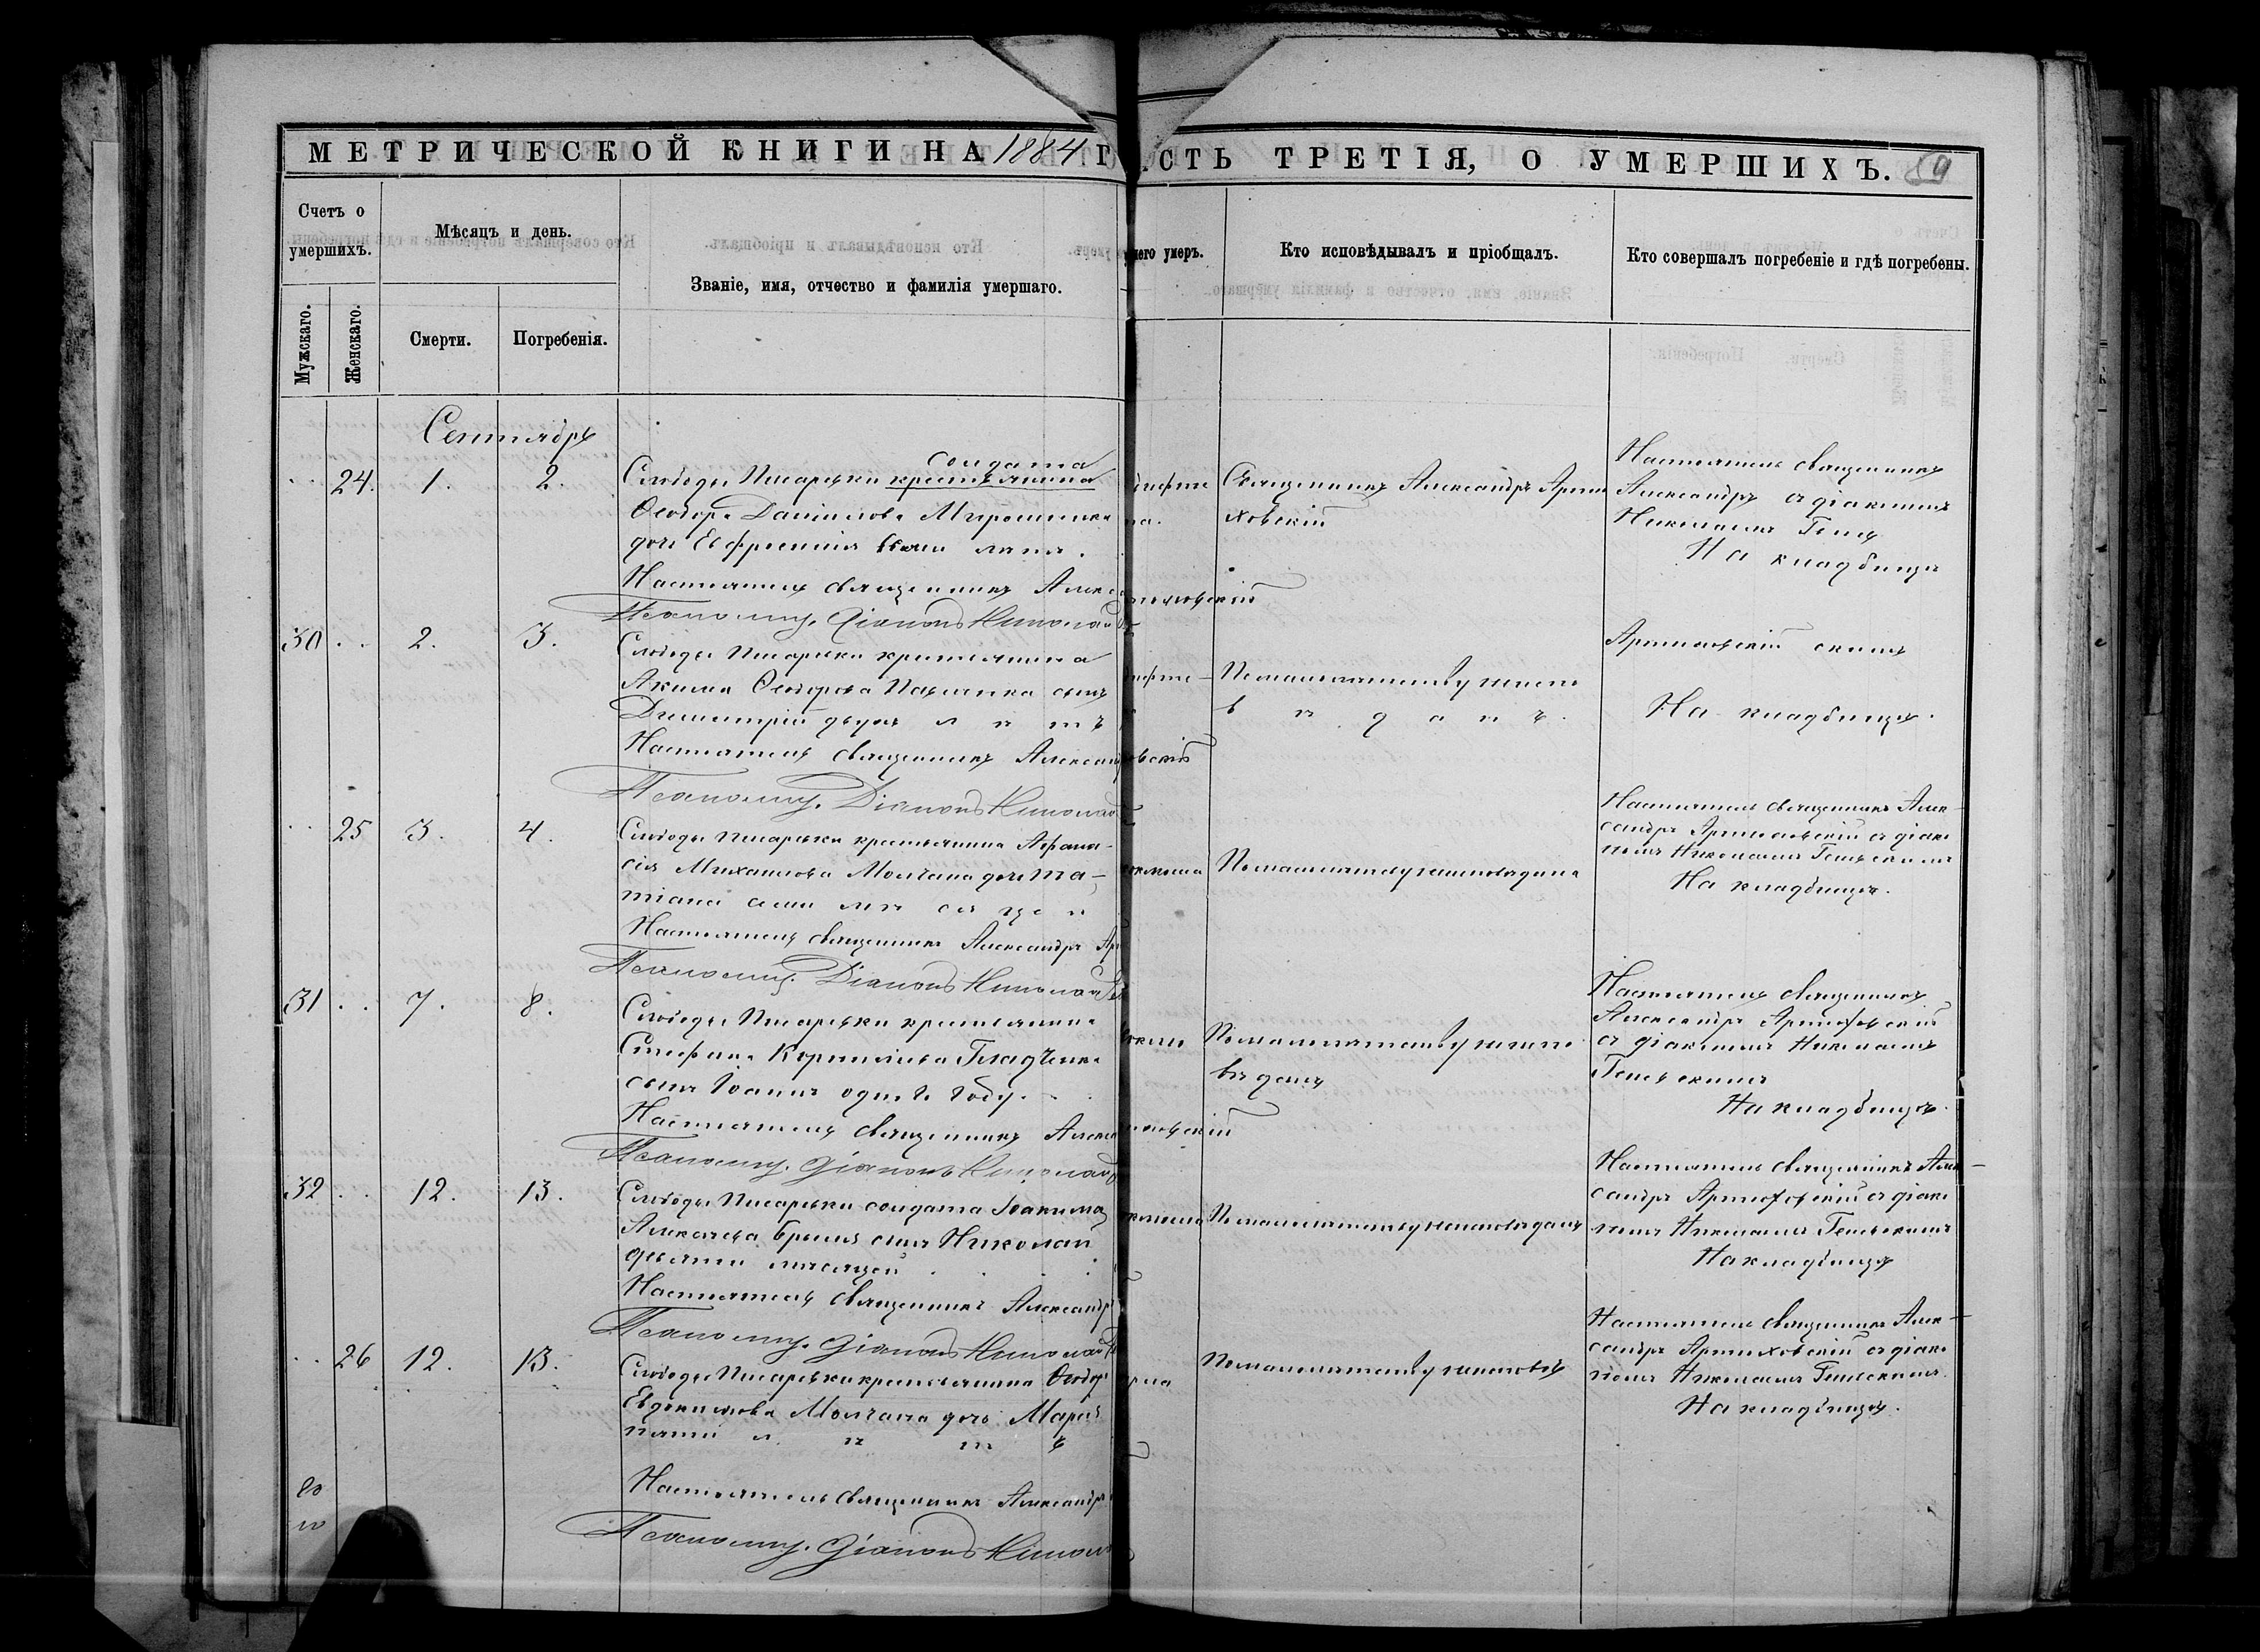 МЕТРИЧЕСКОЙ КНИГИ НА 1884 Г
СТЬ ТРЕТІЯ, О УМЕРШИХЪ. 59
Счетъ о умершихъ.
Мужскаго.
Женскаго.
Мѣсяцъ и день.
Смерти.
Погребенія.
Званіе, имя, отчество и фамилія умершаго.
чего умеръ.
Кто исповѣдывалъ и пріобщалъ.
Кто совершалъ погребеніе и гдѣ погребены.
Сентябрь
24. 1. 2.
солдата
Слободы Писаревки крестьянина
Ѳеодора Данилова Мирошника
дочь Евфросинія
Настоятель священникъ Алекс
Псаломщ. Діаконъ Николай
Священникъ Александръ Артю
ховскій
Настоятель священникъ
Александръ съ діакономъ
Николаемъ
На кладбищѣ
30 2. 3.
Слободы Писаревки крестьянина
Акима Ѳеодорова Павленка сынъ
Димитрій двухъ лѣтъ
Настоятель священникъ Александ
Псаломщ. Діаконъ Николай
По малолѣтству неиспо
вѣданъ.
Артюховскій
На кладбищѣ.
25 3. 4.
Слободы Писаревки крестьянина Афана-
сія Михаилова Молчана дочь Та-
тіана мѣсяцеи
Настоятель священникъ Александръ Ар
Псаломщ. Діаконъ Николай
По малолѣтству неисповѣдана
Настоятель священникъ Алек-
сандръ Артюховскій съ діако
номъ Николаемъ Геневскимъ
На кладбищѣ.
31 7. 8.
Слободы Писаревки крестьянина
Стефана Корнилиева Гладченка
сынъ Іоаннъ одного году.
Настоятель священникъ Алекса
Псаломщ. Діаконъ Николай
По малолѣтству неиспо
вѣданъ
Настоятель священникъ
Александръ Артюховскій
съ діакономъ Николаемъ
Геневскимъ
На кладбищѣ.
32 12. 13.
Слободы Писаревки солдата Іоакима
Алексѣева сынъ Николай
девяти мѣсяцей
Настоятель священникъ Александръ
Псаломщ. Діаконъ Николай
По малолѣтству неисповѣданъ
Настоятель священникъ Алек-
сандръ Артюховскій съ діако
номъ Николаемъ Геневскимъ
На кладбищѣ
26 12. 13.
Слободы Писаревки крестьянина Ѳеодор
Евдокимова Молчана дочь Марія
пяти лѣтъ
Настоятель священникъ Александръ
Псаломщ. Діаконъ Никол
По малолѣтству неисповѣ
Настоятель священникъ Алек-
сандръ Артюховскій съ діако
номъ Николаемъ Геневскимъ
На кладбищѣ.